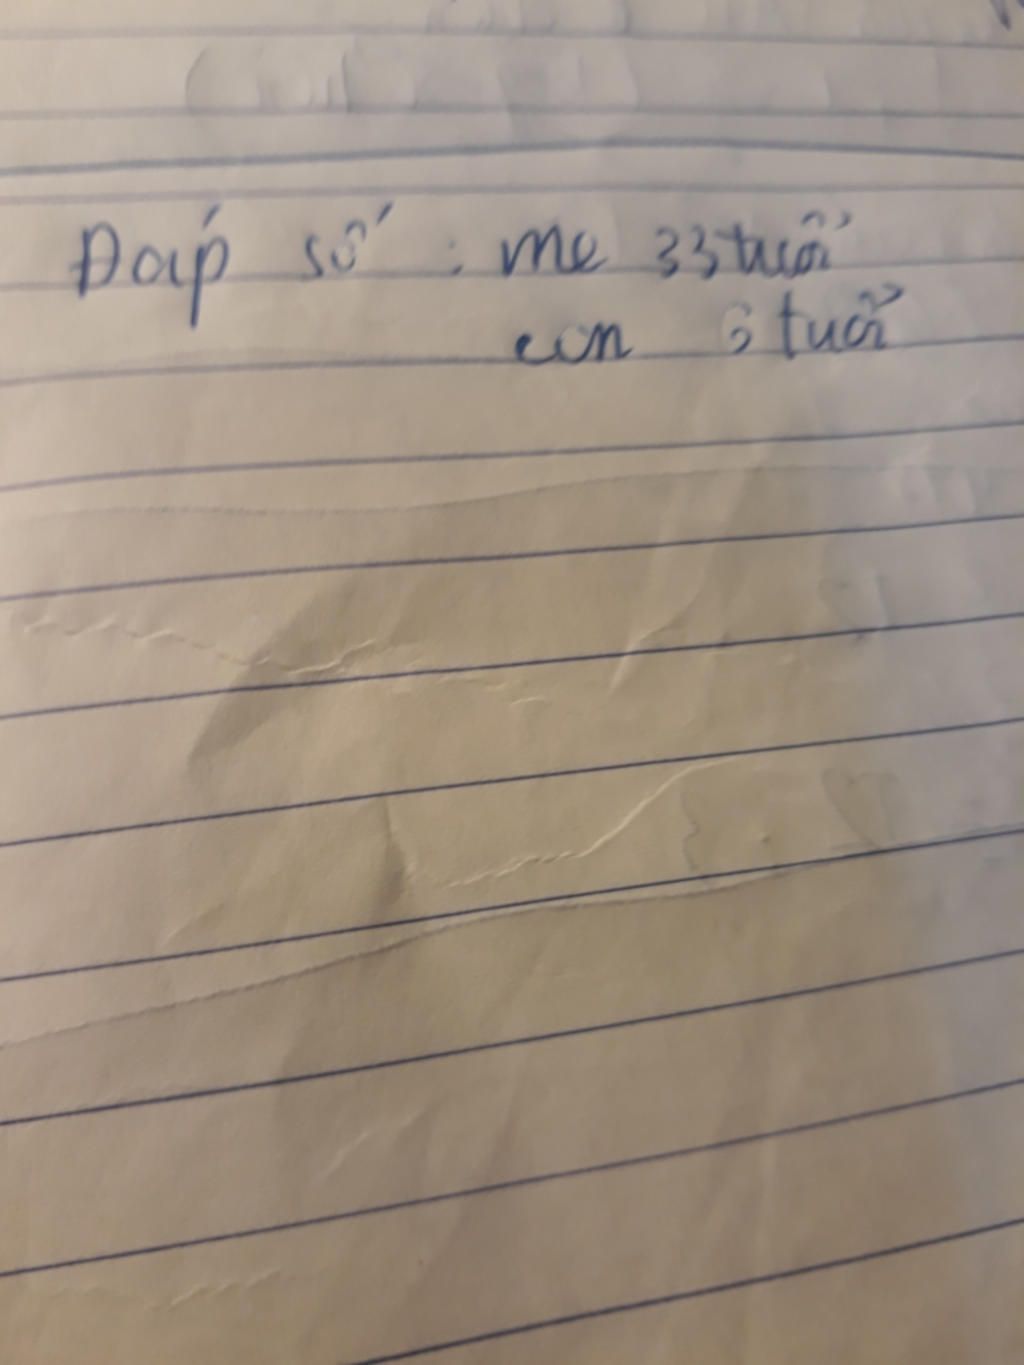 Đáp số : mẹ 33 tuổi
con 6 tuổi